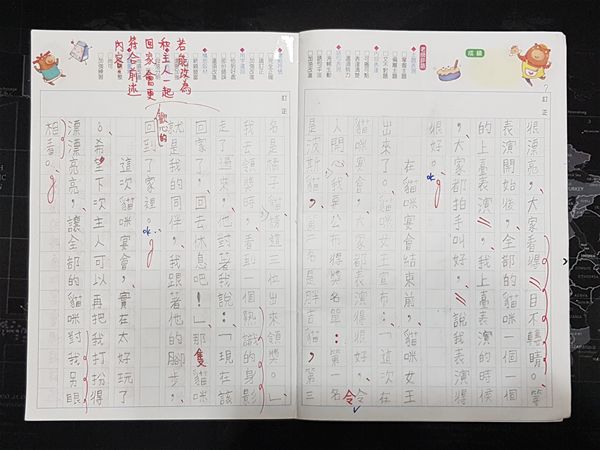 成績
老師評語
訂正
很漂亮,大家看得目不轉睛。等
表演開始後,全部的貓咪一個一個
的上臺表演,我上臺表演的時候
,大家都拍手叫好,說我表演得
很好。
ok
在貓咪宴會結束前,貓咪女王
出來了。貓咪女王宣布:「這次在
貓咪宴會,大家都表演得很好,令
人開心,我要公布得獎名單:第一名
令
是波斯貓,第二名是胖吉貓,第三
訂正
名是橘子貓,請三位出來領獎。」
我去領獎時,看到一個熟識的身影
走了過來,他對著我說:「現在該
回家了,回去休息吧!」那隻貓咪
就是我的同伴,我跟著他的腳步,
回到了家裡。
ok
這次貓咪宴會,實在太好玩了
。希望下次主人可以再把我打扮得
漂漂亮亮,讓全部的貓咪對我另眼
相看。
若能改為
和主人一起
回家會更
符合前述
內容